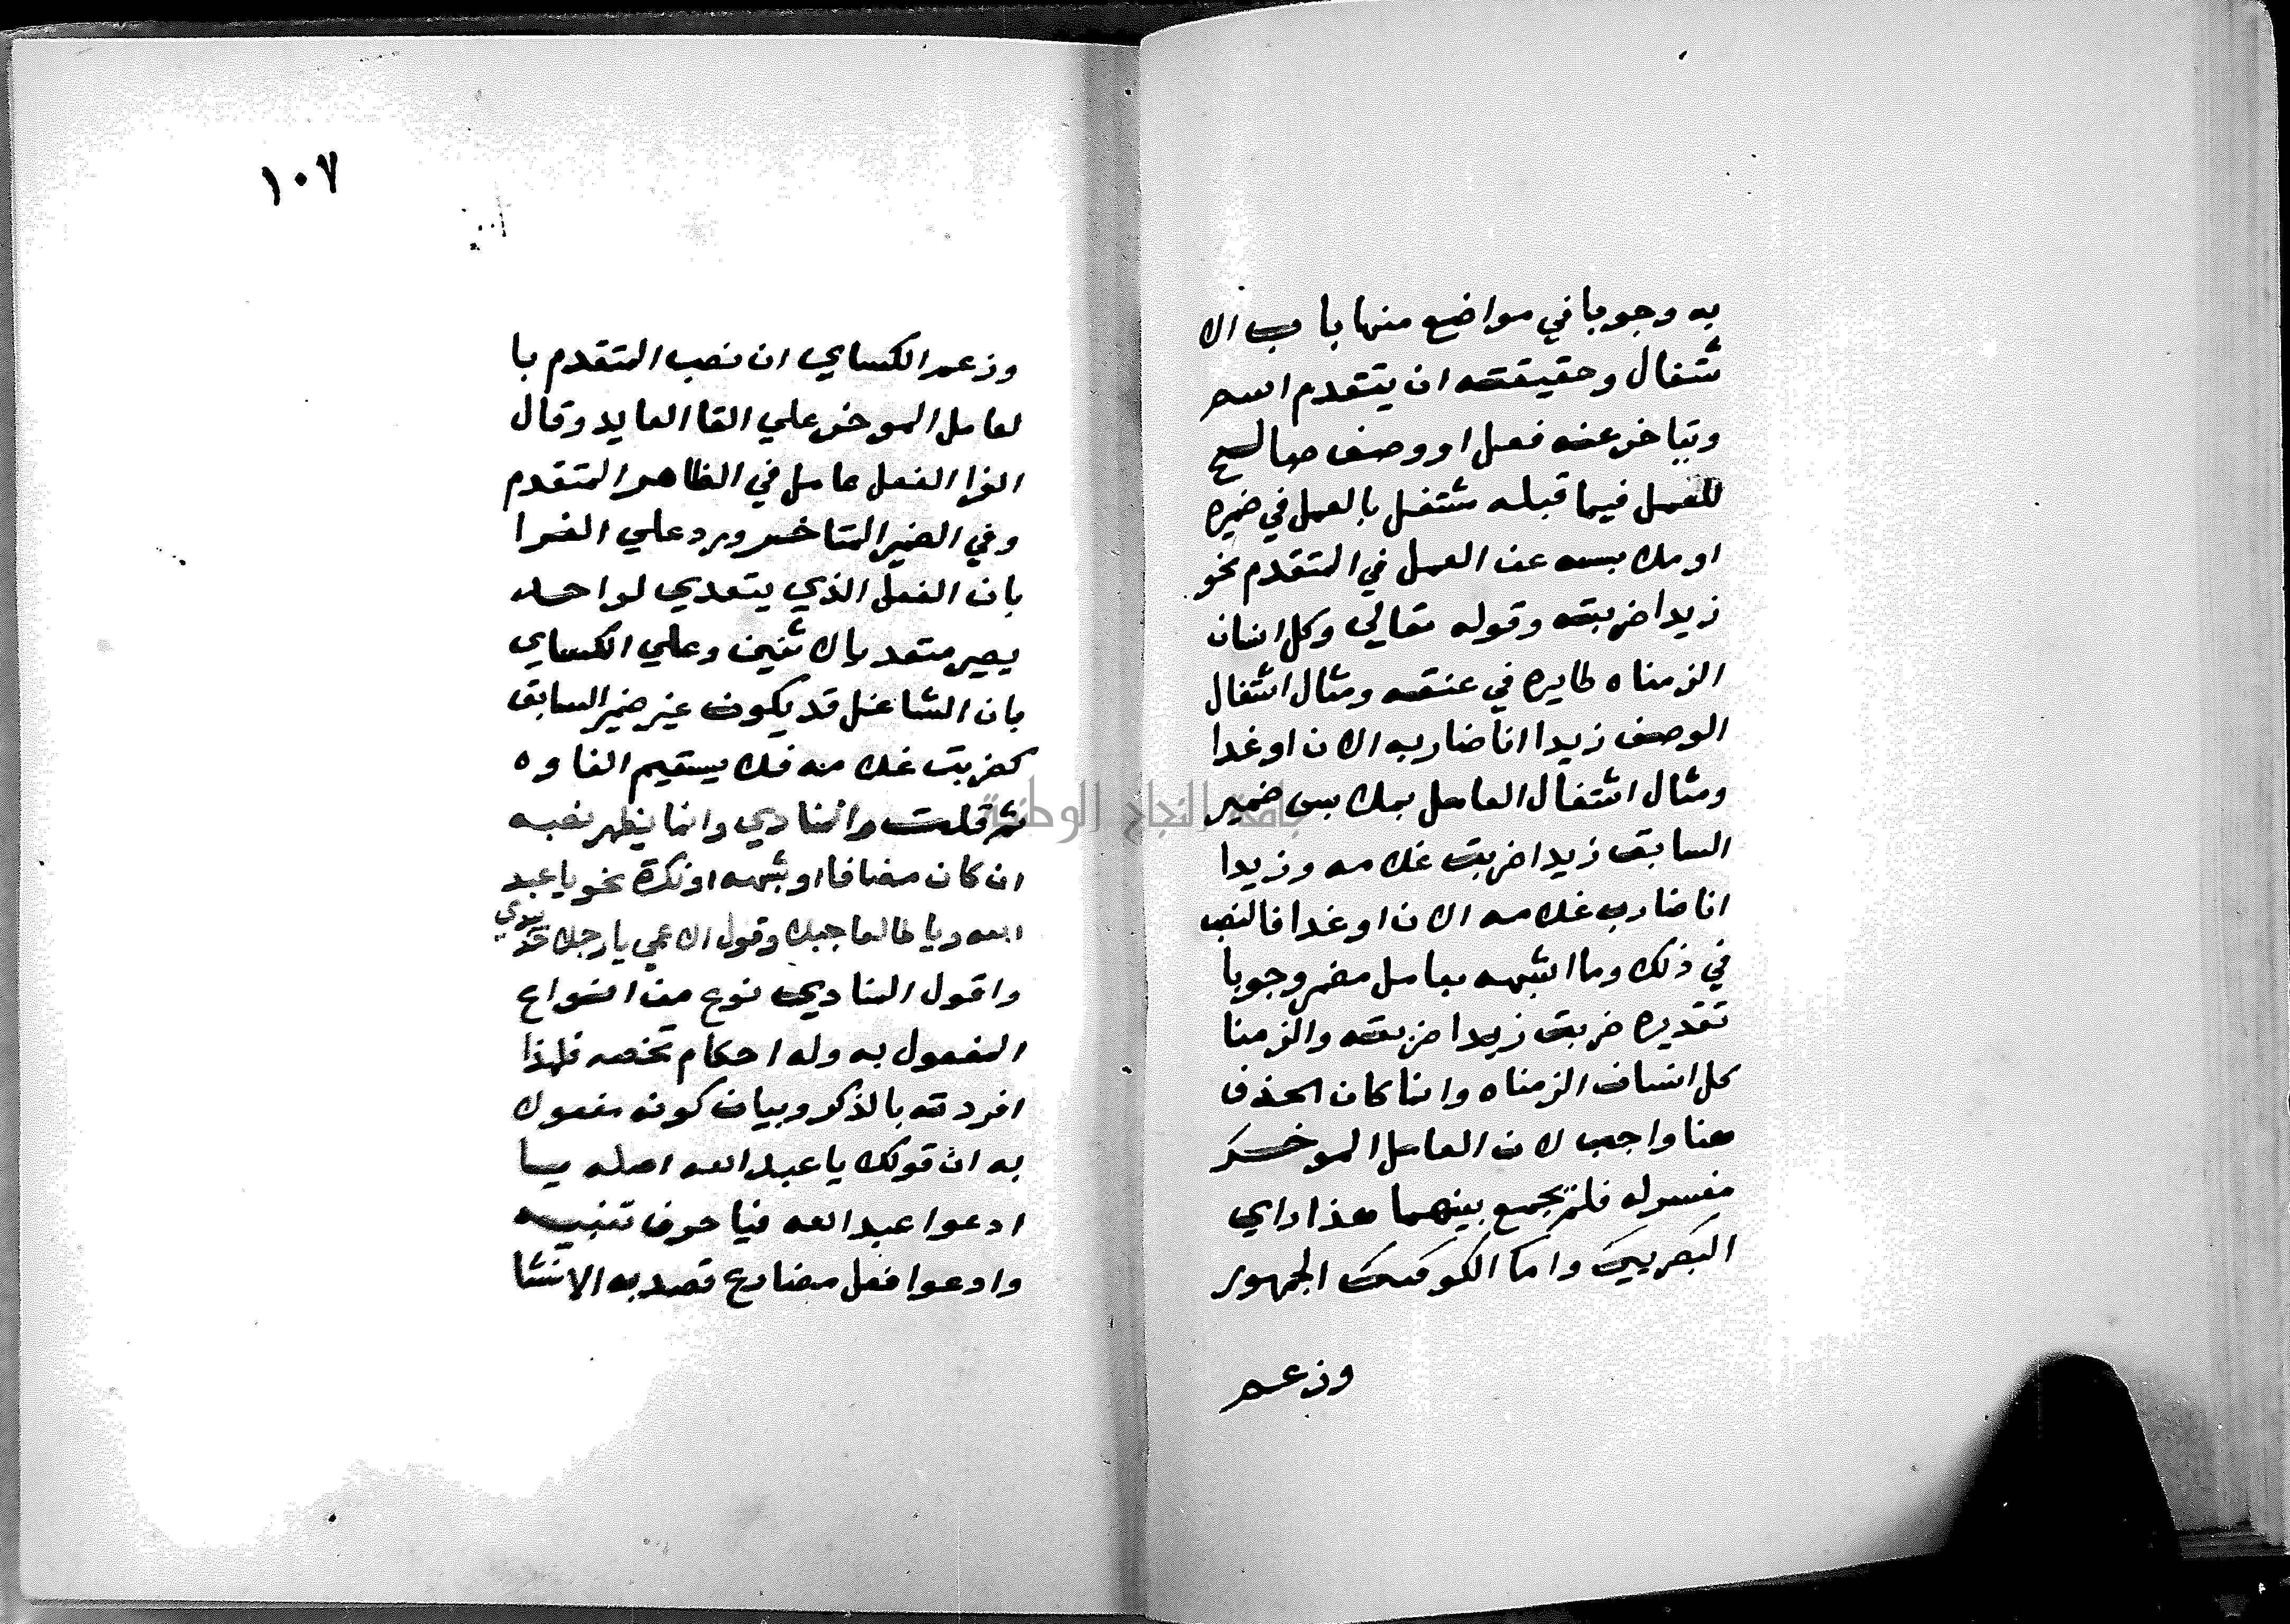 به وجوبا في مواضع منها باب الا
شتغال وحقيقته ان يتقدم اسم
ويتاخر عنه فعل او وصف صالح
للعمل فيما قبله مشتغل بالعمل في ضميره
او ملابسه عن العمل في المتقدم نحو
زيدا ضربته وقوله تعالي وكل انسان
الزمناه طايره في عنقه ومثال اشتغال
الوصف زيدا انا ضاربه الان او غدا
ومثال اشتغال العامل بملابس ضمير
السابق زيدا ضربت غلامه وزيدا
انا ضارب غلامه الان او غدا فالنصب
في ذلك وما اشبهه بعامل مضمر وجوبا
تقديره ضربت زيدا ضربته والزمنا
كل انسان الزمناه وانما كان الحذف
هنا واجب لان العامل الموخر
مفسر له فلم يجمع بينهما هذا راي
البصريين واما الكوفيين الجمهور
وزعم
١٠٧
وزعم الكساي ان نصب المتقدم با
لعامل الموخر علي القا العايد وقال
الفرا الفعل عامل في الظاهر المتقدم
وفي الضمير المتاخر ورد علي الفرا
بان الفعل الذي يتعدي لواحد
يصير متعد بالاثنين وعلي الكساي
بان الشاغل قد يكون غير ضمير السابق
كضربت غلامه فلا يستقيم الغاوه
ثم قلت والمنادي وانما يظهر نصبه
ان كان مضافا او شبهه او نكرة نحو يا عبد
الله ويا طالعا جبلا وقول الاعمي يا رجلا خذ بيدي
واقول المنادي نوع من انواع
المفعول به وله احكام تخصه فلهذا
افردته بالذكر وبيان كونه مفعولا
به ان قولك يا عبد الله اصله يا
ادعوا عبد الله فيا حرف تنبيه
وادعوا فعل مضارع قصد به الانشا
جامعة النجاح الوطنية